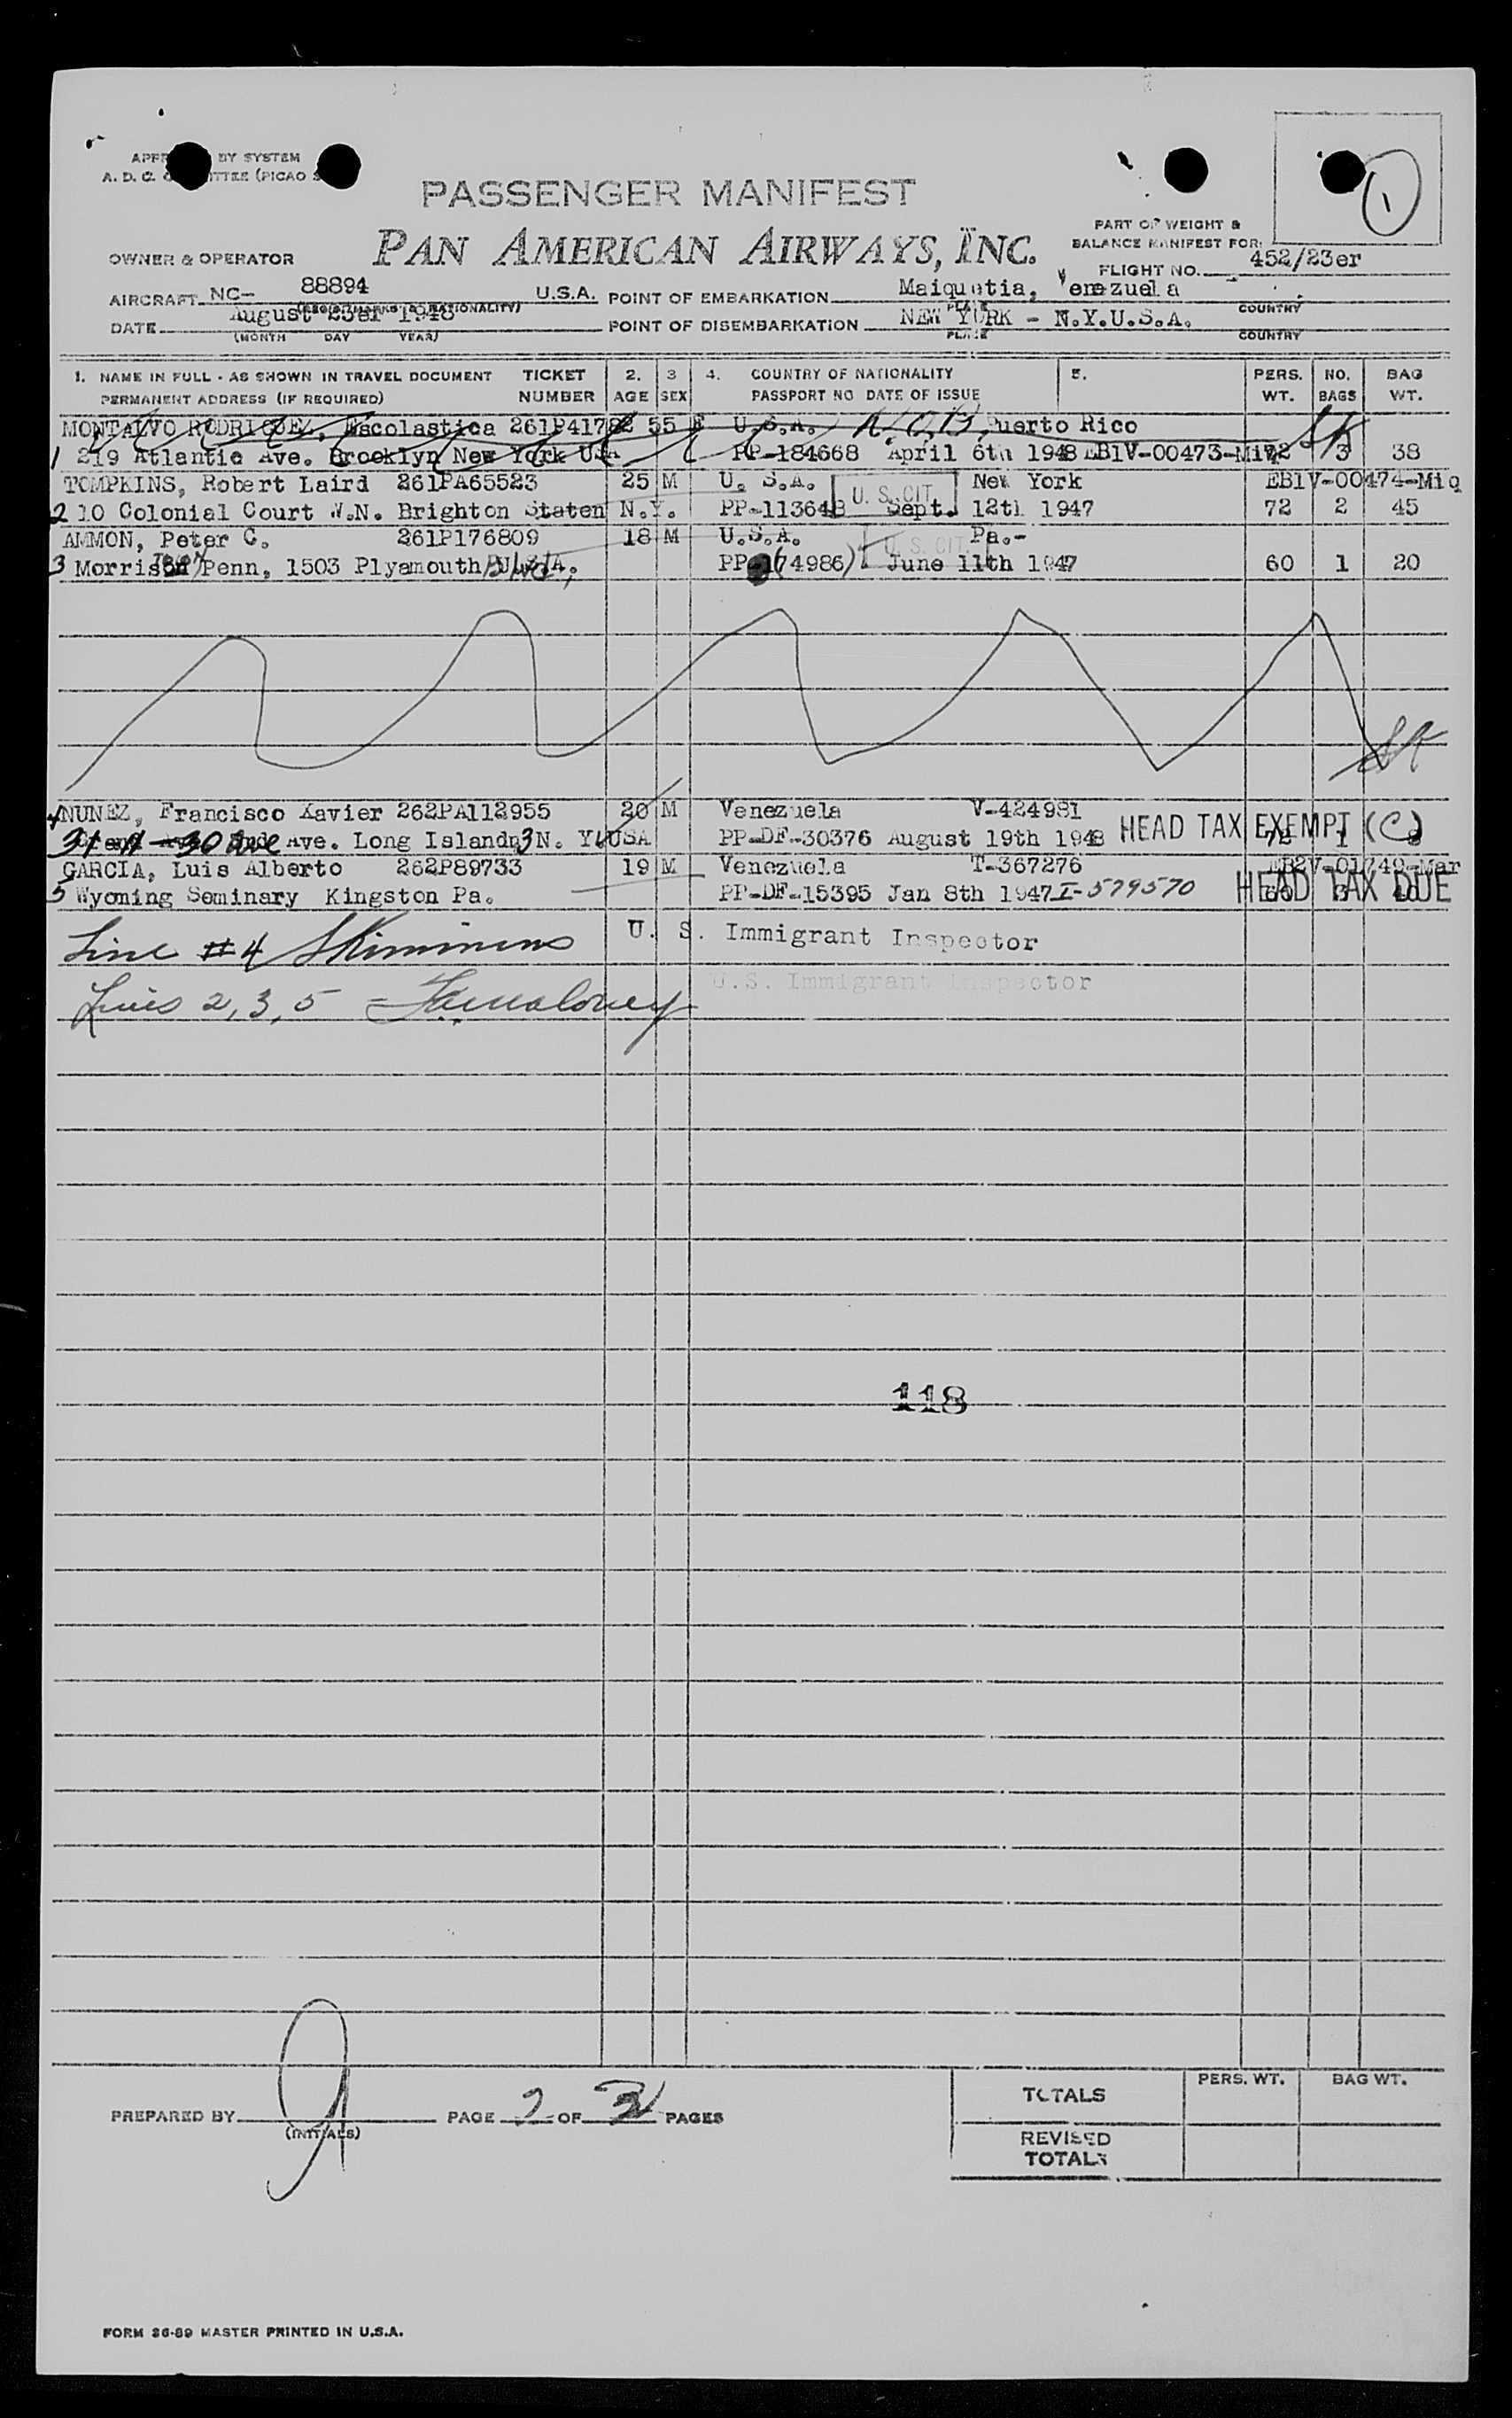 PASSENGER MANIFEST
PAN AMERICAN AIRWAYS, INC.
1
OWNER & OPERATOR
PART OF WEIGHT &
BALANCE MANIFEST FOR:
FLIGHT NO. 452/23er
AIRCRAFT NC- 88894 U.S.A. POINT OF EMBARKATION Maiquetia, Venezuela
PLACE COUNTRY
DATE August 23er 1948 POINT OF DISEMBARKATION NEW YORK - N.Y.U.S.A.
(MONTH DAY YEAR) PLACE COUNTRY
1. NAME IN FULL - AS SHOWN IN TRAVEL DOCUMENT TICKET 2. 3 4. COUNTRY OF NATIONALITY 5. PERS. NO. BAG
PERMANENT ADDRESS (IF REQUIRED) NUMBER AGE SEX PASSPORT NO DATE OF ISSUE WT. BAGS WT.
MONTALVO RODRIGUEZ, Escolastica 261P41782 55 F U.S.A. N.O.B. Puerto Rico
1 219 Atlantic Ave. Brooklyn New York USA PP-184668 April 6th 1948 EB1V-00473-Miq 72 3 38
TOMPKINS, Robert Laird 261PA65523 25 M U. S.A. U. S. CIT. New York EB1V-00474-Miq
2 10 Colonial Court W.N. Brighton Staten N.Y. PP-113648 Sept. 12th 1947 72 2 45
AMMON, Peter C. 261P176809 18 M U.S.A. U. S. CIT. Pa.-
3 Morrison Penn, 1503 Plyamouth Blvd, PP-1(74986) June 11th 1947 60 1 20
NUNEZ, Francisco Xavier 262PA112955 20 M Venezuela V-424981
4 30 Ave Ave. Long Island 3 N. Y USA PP-DF-30376 August 19th 1948 HEAD TAX EXEMPT (C) 72 1
GARCIA, Luis Alberto 262P89733 19 M Venezuela T-367276 EB2V-01749-Mar
5 Wyoming Seminary Kingston Pa. PP-DF-15395 Jan 8th 1947 I-579570 HEAD TAX DUE
Line #4 U. S. Immigrant Inspector
Lines 2, 3, 5 U.S. Immigrant Inspector
118
PREPARED BY
(INITIALS)
PAGE 2 OF PAGES
PERS. WT. BAG WT.
TOTALS
REVISED
TOTALS
FORM 36-89 MASTER PRINTED IN U.S.A.